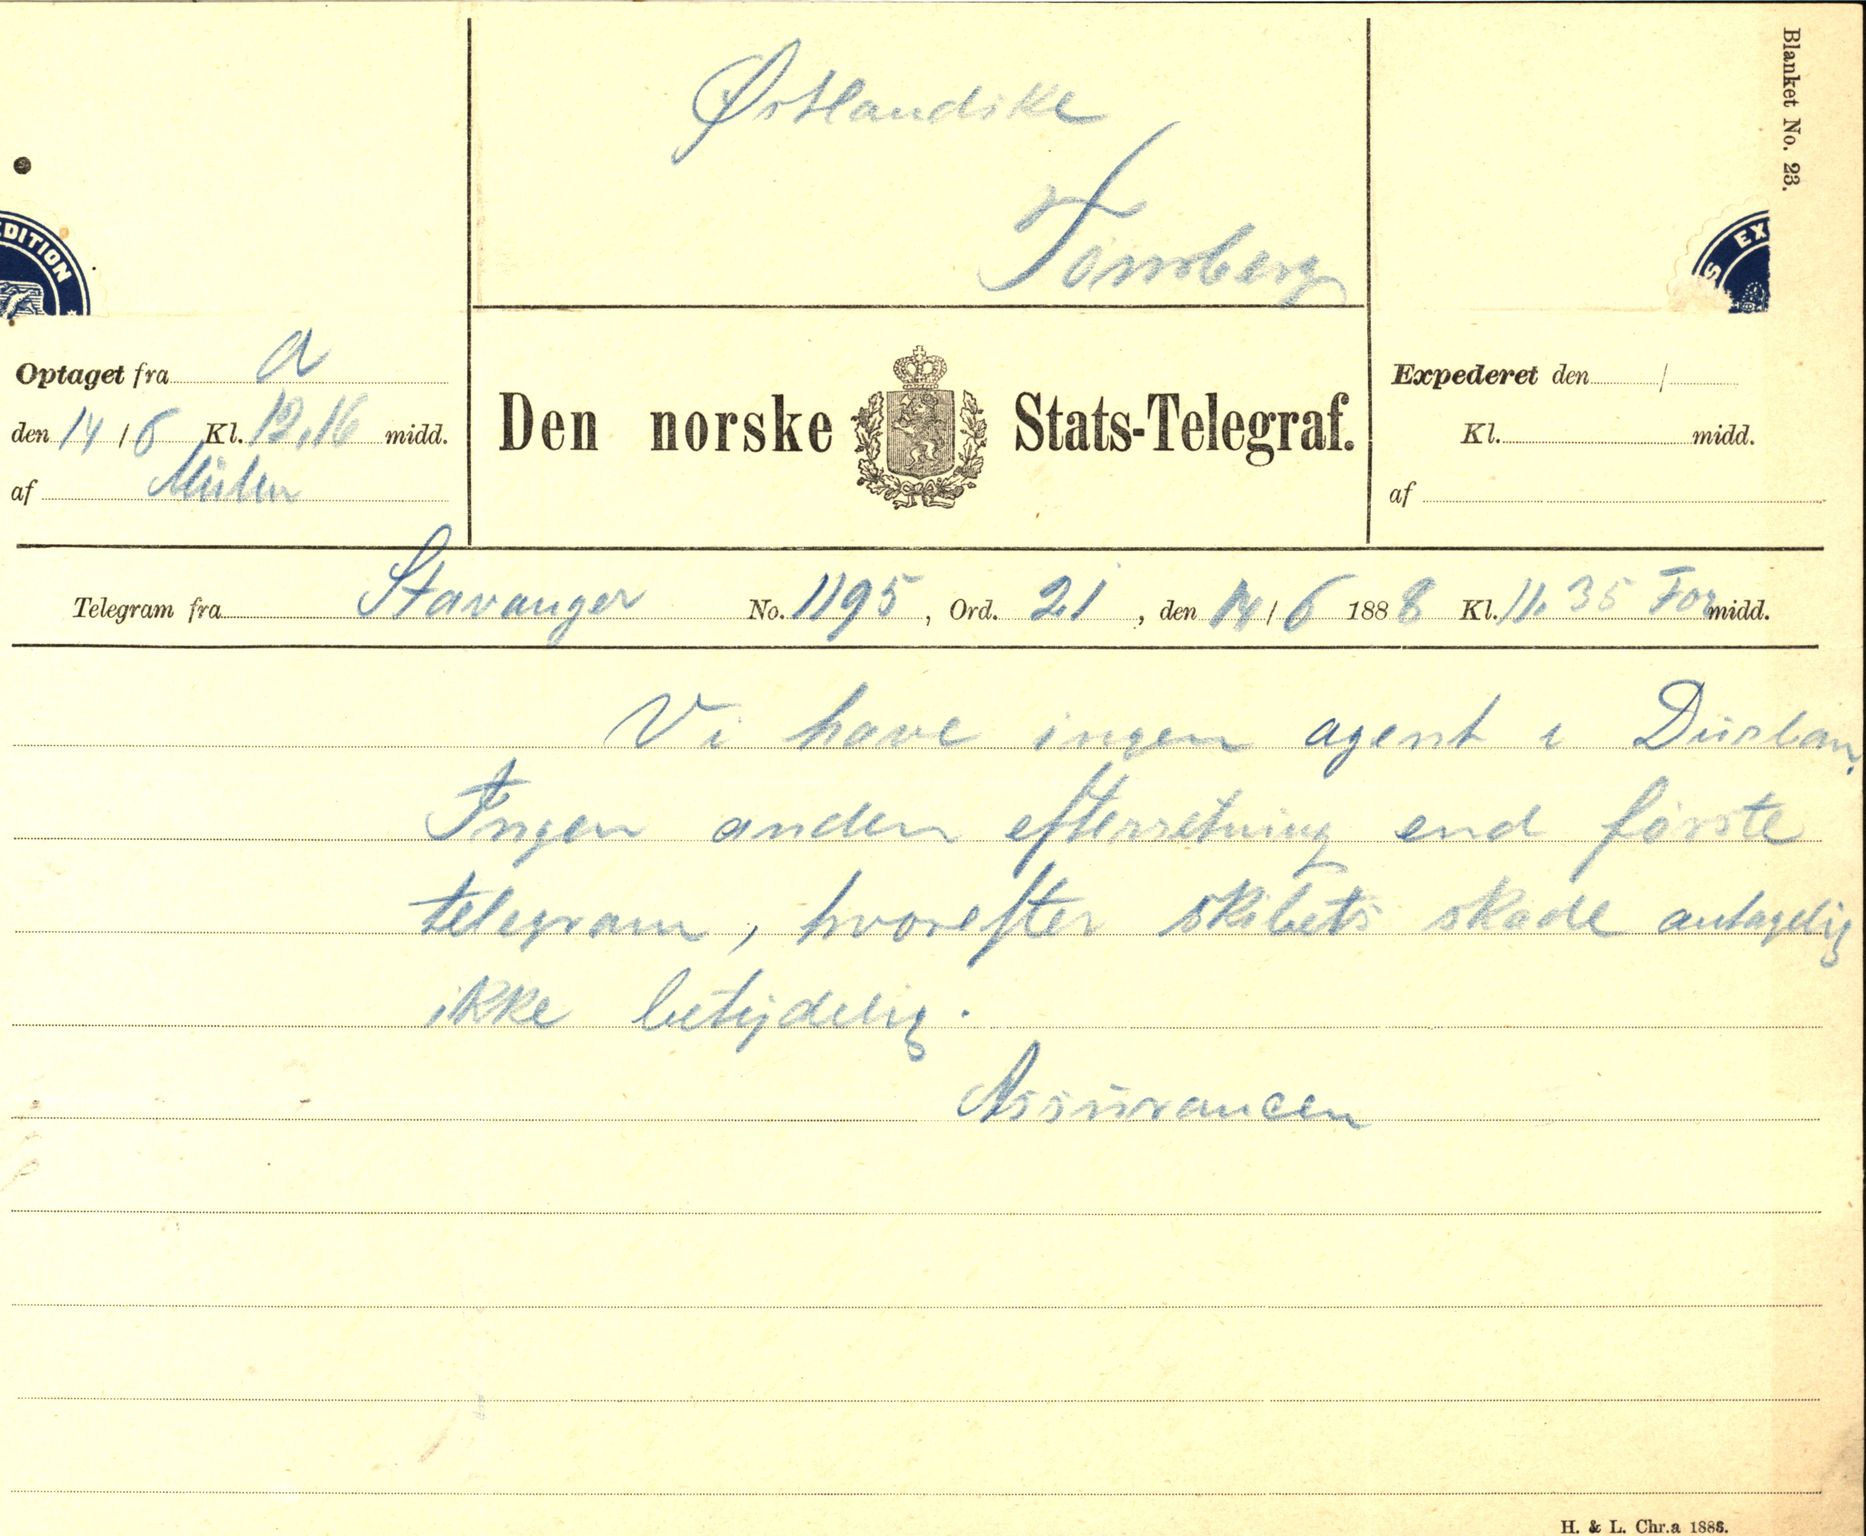 Blanket No. 23.
Østlandske
Tønsberg
EDITION
S EX
Optaget fra a
den 14/6 Kl. 12,16 midd.
af
Den norske Stats-Telegraf.
Expederet den /
Kl. midd.
af
Telegram fra Stavanger No. 1195, Ord. 21, den 14/6 1888 Kl. 11.35 For midd.
Vi have ingen agent i Durban.
Ingen anden efterretning end første
telegram, hvorefter skibets skade antagelig
ikke betydelig.
Assurancen
H. & L. Chr.a 1888.